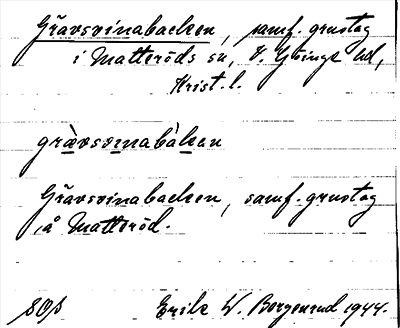 Grävsvinabacken, samf. grustag
i Matteröds sn, V. Göinge hd,
Krist. l.
grävsvinabàkan
Grävsvinabacken, samf. grustag
å Matteröd.
Erik W. Bergenrud 1944.